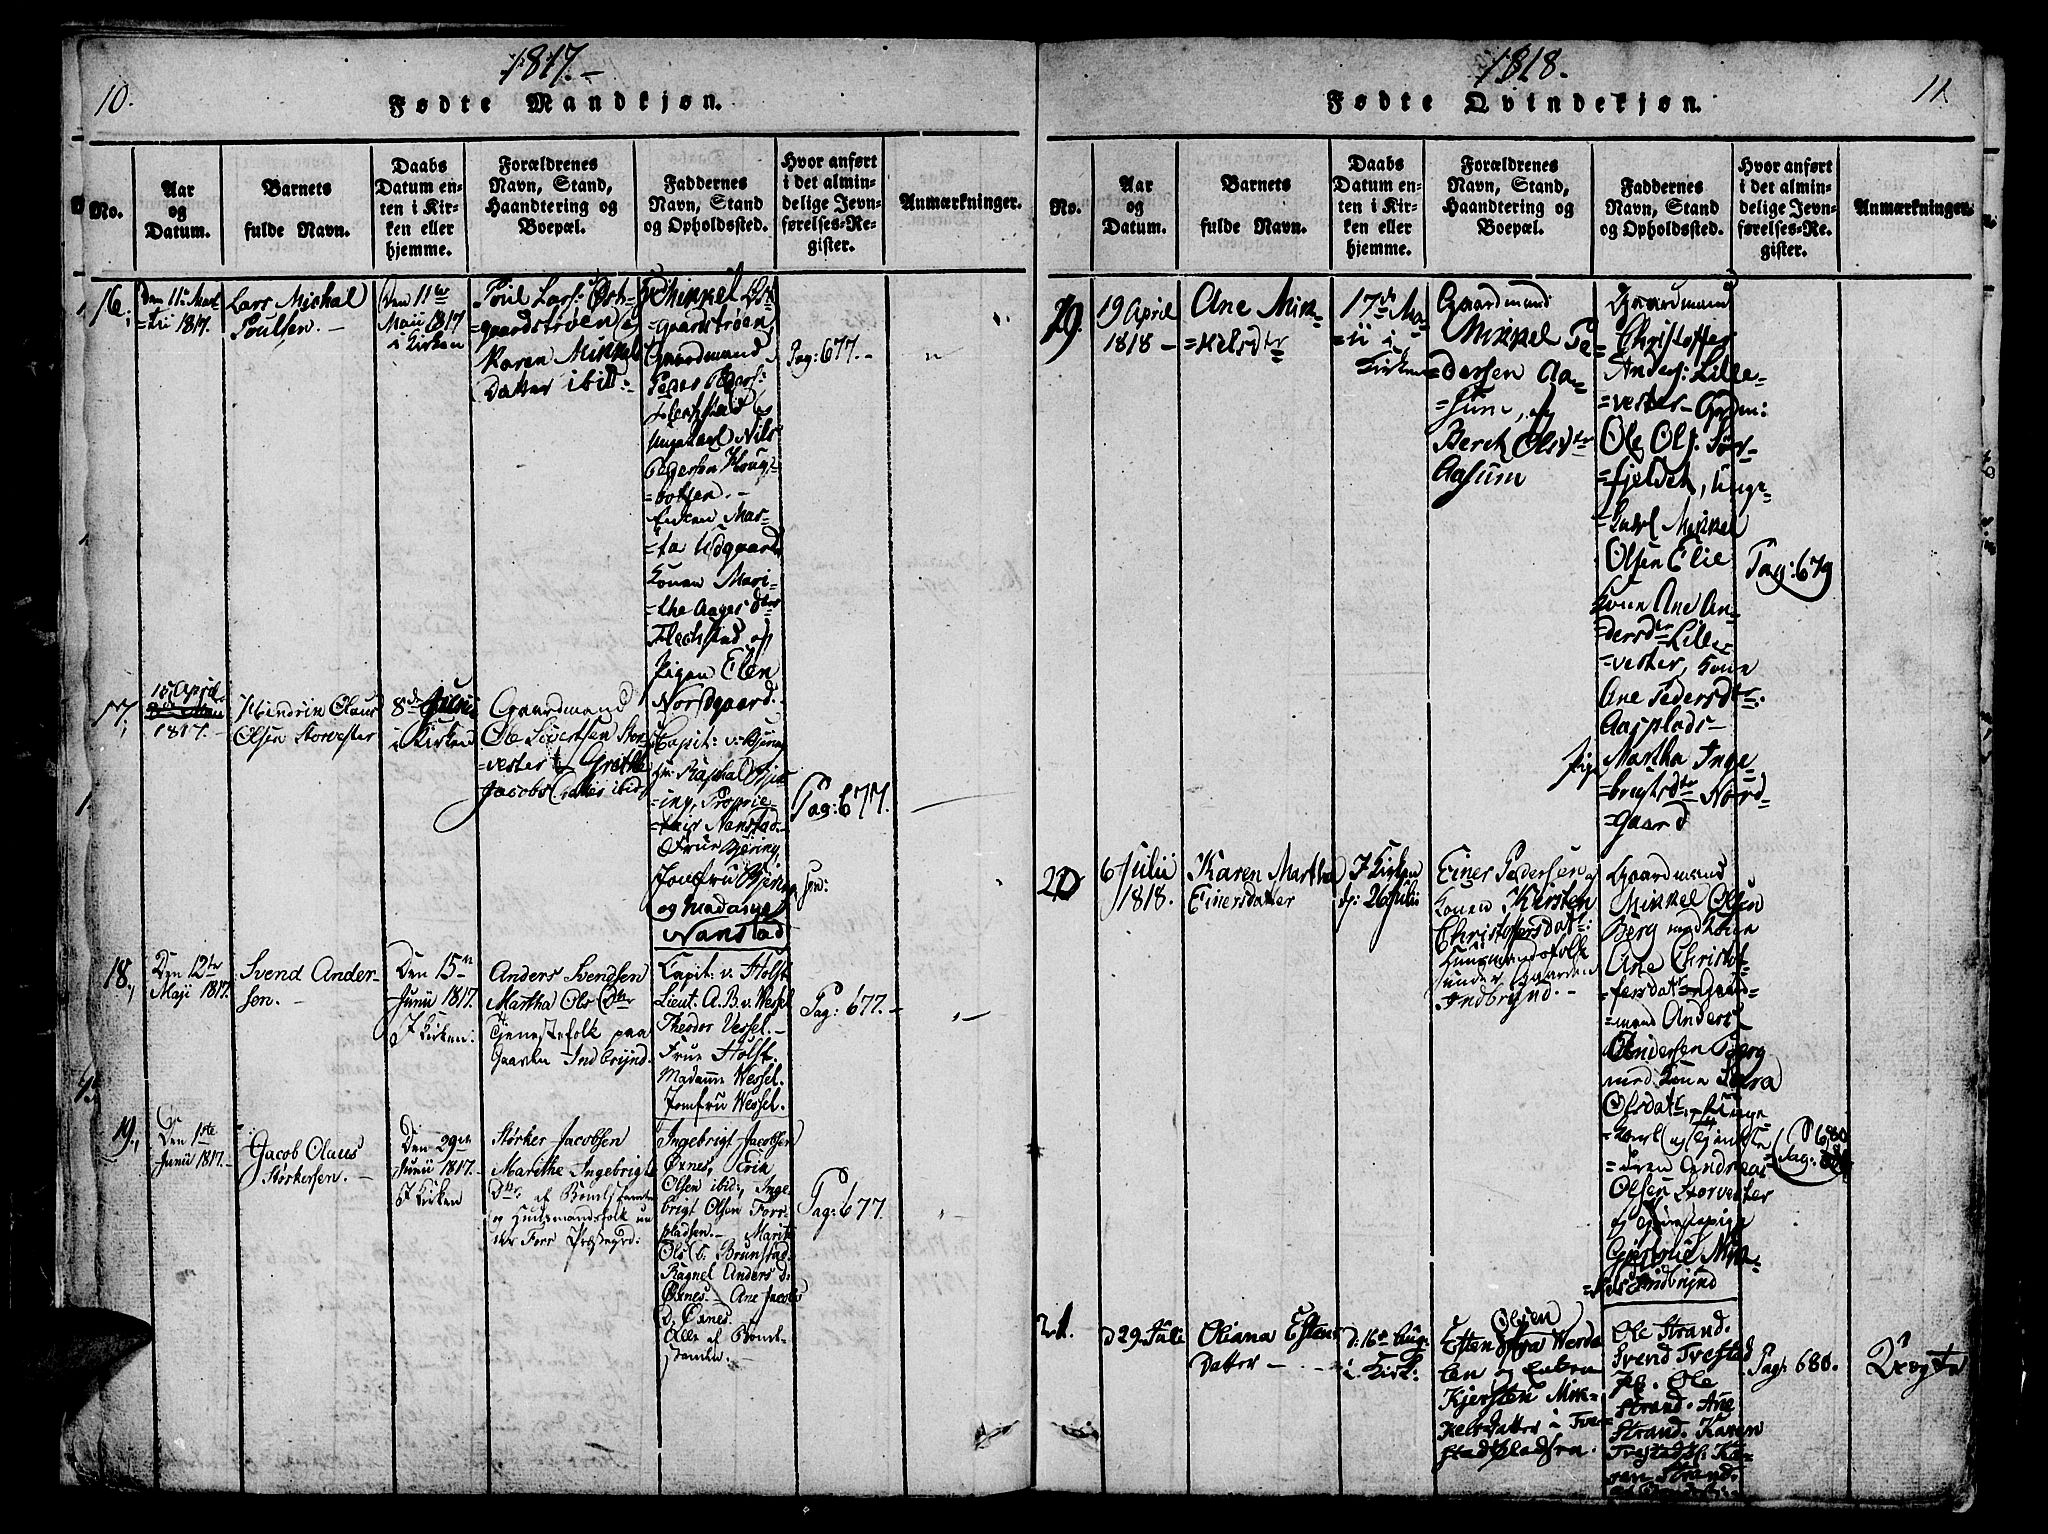 1817.-
10.
Fødte Mandkjøn.
No.
Aar
og
Datum.
Barnets
fulde Navn.
Daabs
Datum en-
ten i Kir-
ken eller
hjemme.
Forældrenes
Navn, Stand,
Haandtering og
Boepæl.
Faddernes
Navn, Stand
og Opholdssted.
Hvor anført
i det almin-
delige Jevn-
førelses-Re-
gister.
Anmærkninger.
16,
Den 11te Mar-
1817.
Lars Michal
Poulsen. -
Den 11te
Maii 1817
i Kirken
Poul Lars: Øst-
gaardstrøen og
Karen Mikkels
Datter ibid:
Mikkel Øst
=gaardstrøen,
Gaardmand
Peder
og
Ungekarl Nils
Pedersen Houg
=botten. -
Enken Mar-
=ta Udgaard
Konen Mari-
=the Aagesdtr
Flechstad og
Pigen Elen
Nordgaard.
Pag: 677. -
17,
15 April
1817. -
Hendrik Olaus
Olsen Storvester
8de Junii
i Kirken
Gaardmand
Ole Sivertsen Stor-
=vester og Grethe
Jacobs Datter ibid
Capit: v. Bjering
Hr. Raphal Bjer
=ing, Proprie-
=tair Nanstad.
Frue Bjering,
Jomfru Bjering
og Madame
Nanstad
Pag: 677.
18,
Den 12te
Maji 1817.
Svend Ander-
sen. -
Den 15n
Junii 1817.
I Kirken:
Anders Svendsen
Martha Ols Dtr
Tjenestefolk paa
Gaarden Indbrynd.
Capit: v. Holst
Lieut. A. B. v. Wessel
Theodor Wessel. -
Frue Holst.
Madame Wessel.
Jomfru Wessel.
Pag: 677. -
19,
Den 1ste
Junii 1817. -
Jacob Olaus
Størkersen. -
Den 29de
Junii 1817.
I Kirken
Størker Jacobsen
Marithe Ingebrigt
Dtr af Bondestanden
og Huusmandsfolk un
der Forr Præstegrd:
Ingebrigt Jacobsen
Øxnes, Erik
Olsen ibid:, Inge
brigt Olsen Forr-
pladsen. - Marit
Ols D. Brunstad
Ragnel Anders d:
Øxnes. - Ane Jacobs
D. Øxnes.
Alle af Bonde-
standen. -
Pag: 677.
1818.
11
Fødte Qvindekjøn.
No.
Aar
og
Datum.
Barnets
fulde Navn.
Daabs
Datum en-
ten i Kir-
ken eller
hjemme.
Forældrenes
Navn, Stand,
Haandtering og
Boepæl.
Faddernes
Navn, Stand
og Opholdssted.
Hvor anført
i det almin-
delige Jevn-
førelses-Re-
gister.
Anmærkninger.
19.
19 April
1818 -
Ane Mik-
=kelsdtr
17de Ma-
=ii i
Kirken
Gaardmand
Mikkel Pe-
=dersen Aa-
=sum, og
Bereth Olsdtr
Aasum
Gaardmand
Christoffer
Anders: Lille-
=vester - Grdm:
Ole Ols: Sør-
=fjeldet, Unge-
=karl Mikkel
Olsen Elie
Kone Ane An-
dersdtr Lille
=vester, Kone
Ane Pedersdtr:
Aasplads-
Pige Martha Inge
=brigtsdtr Nord-
=gaard
Pag: 679
20
6 Julii
1818.
Karen Martha
Einersdatter
I Kirken
d: 26 Julii
Einer Pedersen og
Konen Kirsten
Christophersdat:
Huusmandsfolk
under Gaarden
Indbrynd. -
Gaardmand
Mikkel Olsen
Berg med Kone
Ane Christof-
fersdatr Gaard-
=mand Anders
Andersen Berg
med Kone Sara
Olsdatr. - Unge
=karl og Tjeneste
=dreng Andreas
Olsen Storvester
og Tjenestepige
Gjertrue Mik-
=kels Indbrynd
P 680
Pag:
21.
d 29 Juli
Oliana Estens
Datter -
d: 16de Aug.
i Kirk:
Esten Olsen fra Werda
len og Enken
Kjersten Mik-
kels Datter i Tre-
stad Pladsen.
Ole Strand.
Svend Trestad
Ole
Strand. Ane
Strand. Karen
Trestad Ka-
ren Strand.
Pag: 680.
Uægte